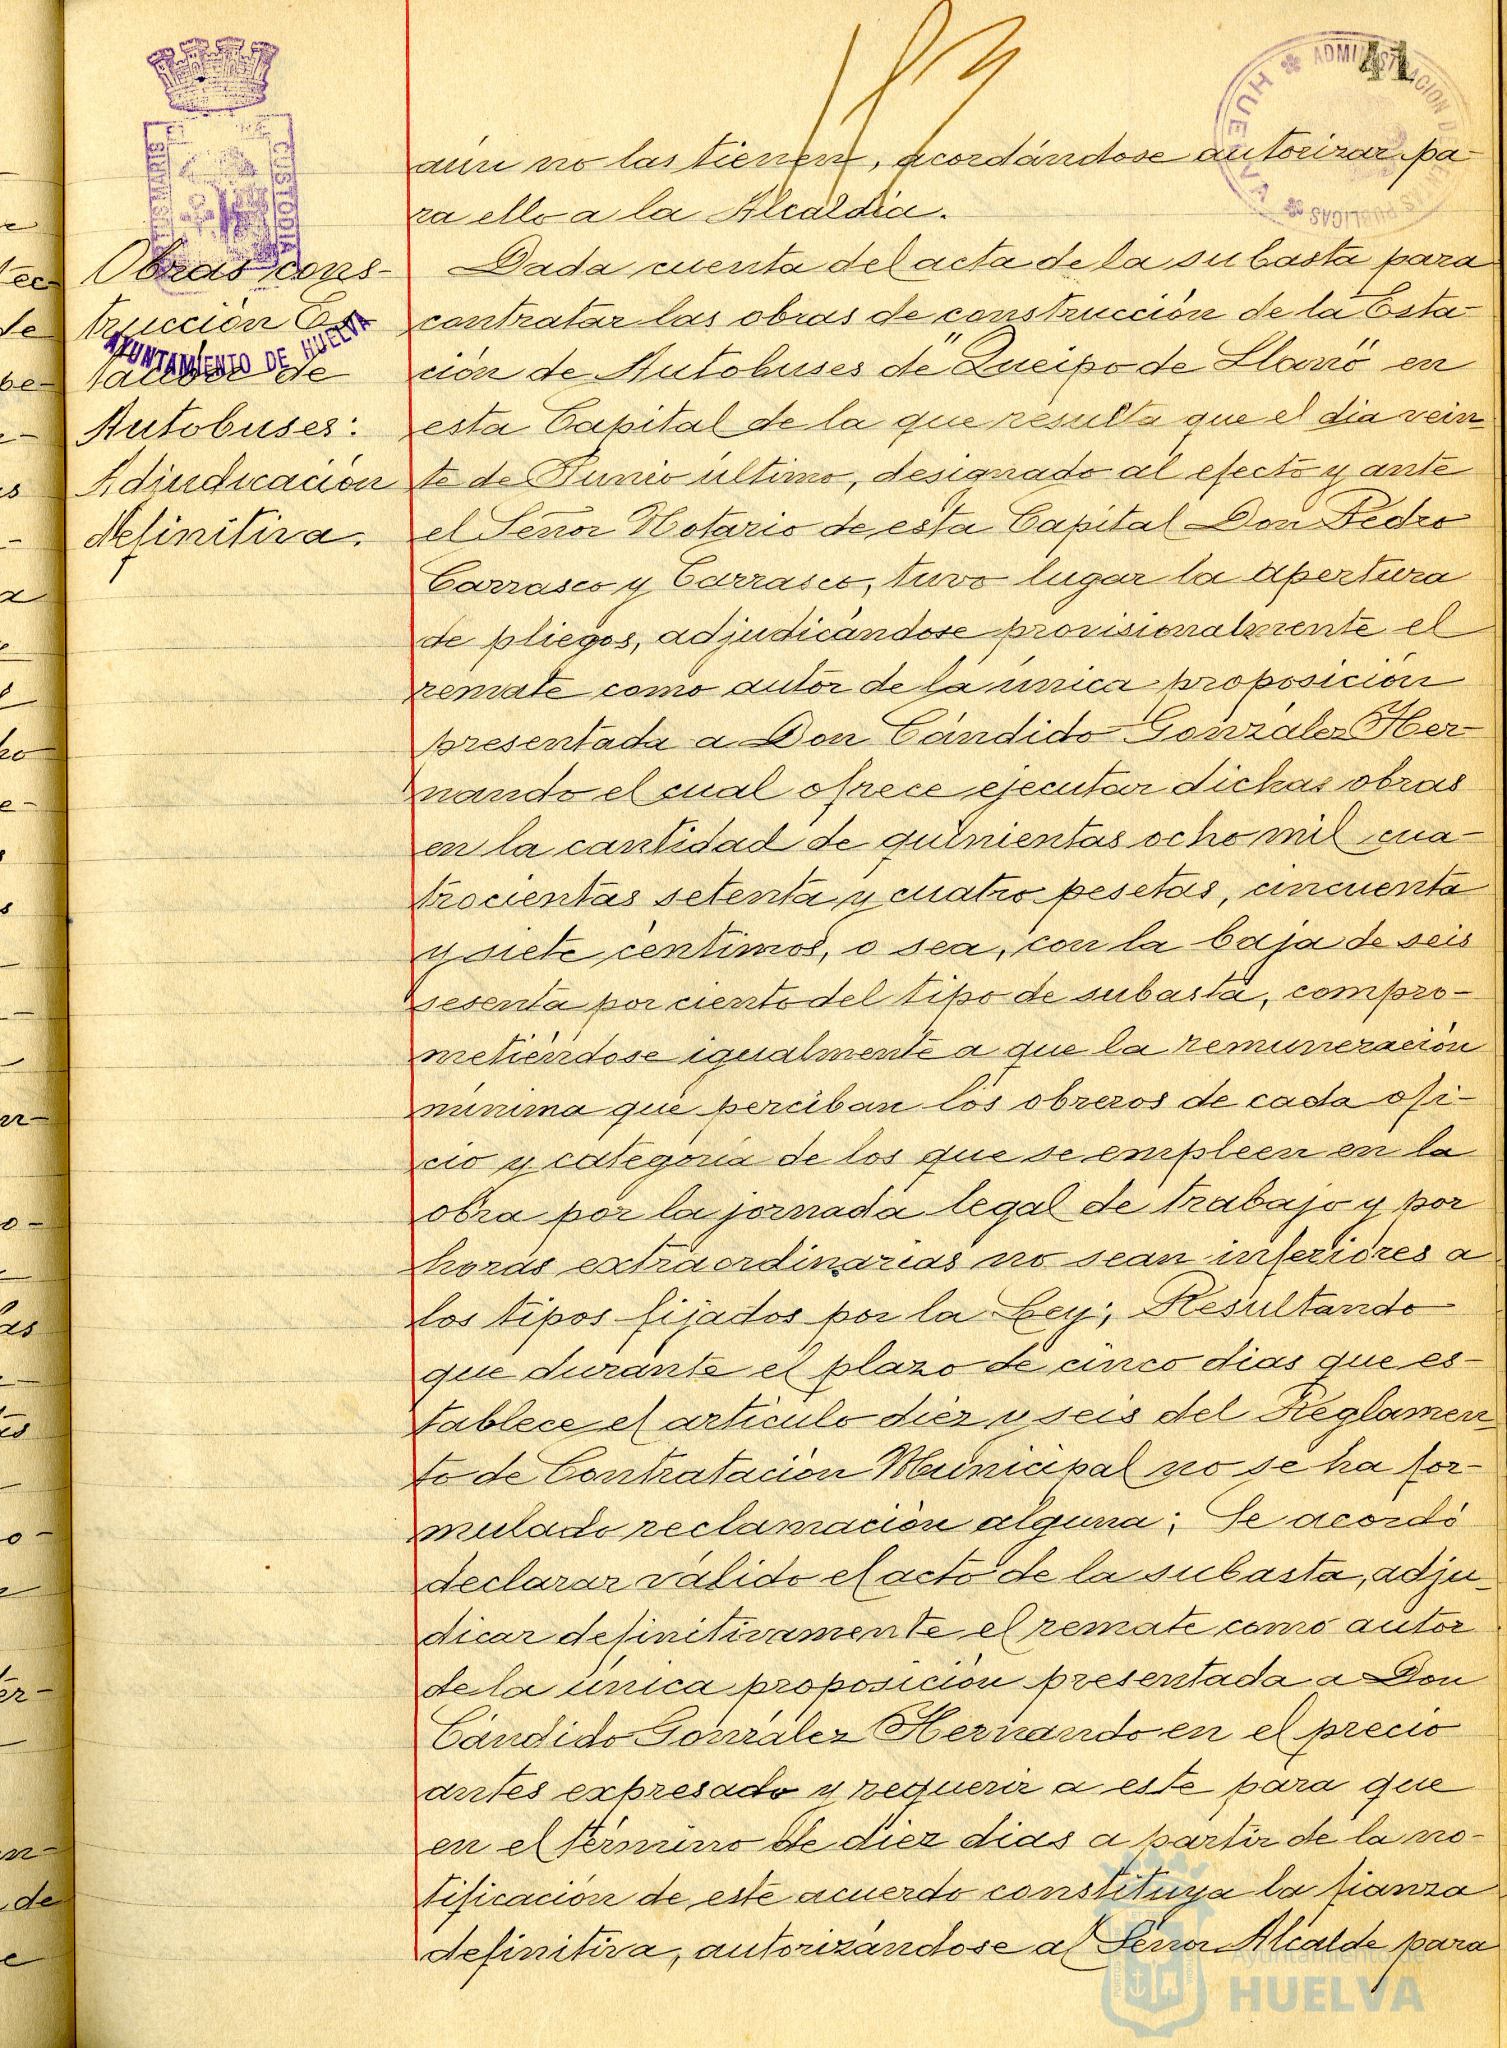 41
ADMINISTRACION DE
HUELVA
PUBLICAS
PORTUS MARIS
CUSTODIA
AYUNTAMIENTO DE HUELVA
Obras cons-
trucción Es-
de
Autobuses:
Adjudicación
definitiva.
aún no las tienen, acordándose autorizar pa-
ra ello a la Alcaldia.
Dada cuenta del acta de la subasta para
contratar las obras de construcción de la Esta-
ción de Autobuses de "Queipo de Llano" en
esta Capital de la que resulta que el dia vein-
te de Junio último, designado al efecto y ante
el Señor Notario de esta Capital Don Pedro
Carrasco y Carrasco, tuvo lugar la apertura
de pliegos, adjudicándose provisionalmente el
remate como autor de la única proposición
presentada a Don Cándido González Her-
nando el cual ofrece ejecutar dichas obras
en la cantidad de quinientas ocho mil cua-
trocientas setenta y cuatro pesetas, cincuenta
y siete céntimos, o sea, con la baja de seis
sesenta por ciento del tipo de subasta, compro-
metiéndose igualmente a que la remuneración
mínima que perciban los obreros de cada ofi-
cio y categoría de los que se empleen en la
obra por la jornada legal de trabajo y por
horas extraordinarias no sean inferiores a
los tipos fijados por la Ley; Resultando
que durante el plazo de cinco dias que es-
tablece el artículo diez y seis del Reglamen-
to de Contratación Municipal no se ha for-
mulado reclamación alguna; Se acordó
declarar válido el acto de la subasta, adju-
dicar definitivamente el remate como autor
de la única proposición presentada a Don
Cándido González Hernando en el precio
antes expresado y requerir a este para que
en el término de diez dias a partir de la no-
tificación de este acuerdo constituya la fianza
definitiva, autorizándose al Señor Alcalde para
Ayuntamiento de
HUELVA